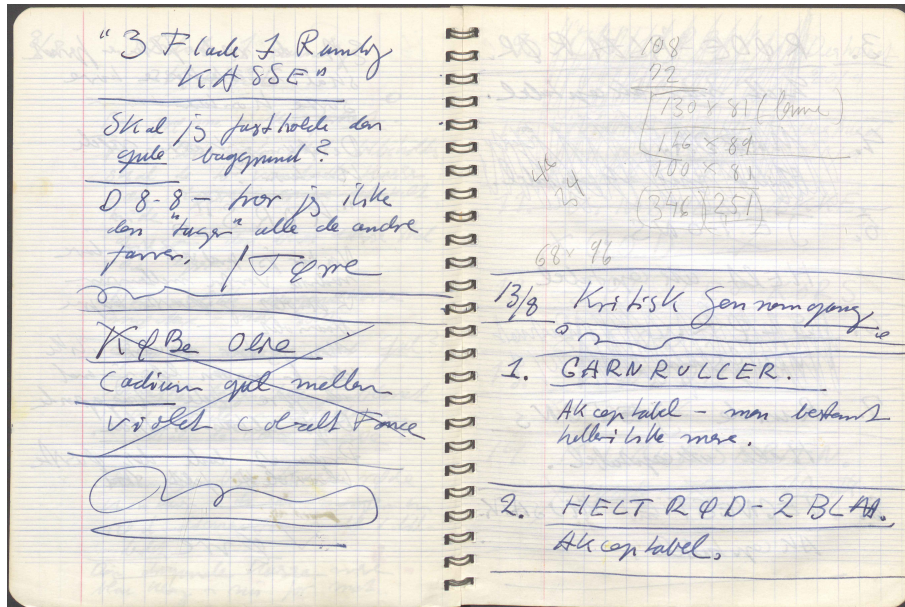 "3 Flade
KASSE"
Skal jeg fastholde den
gule baggrund?
D 8-8 – tror jeg ikke
den "tager" alle de andre
farver.
KØBe Olie
Cadium gul mellem
violet Cobalt
108
22
130 x 81 (
146 x 89
100 x 81
346 251
24
68 x 96
13/8 Kritisk Gennemgang
1. GARNRULLER.
Akceptabel – men bestemt
heller ikke mere.
2. HELT RØD – 2 BLAA.
Akceptabel.